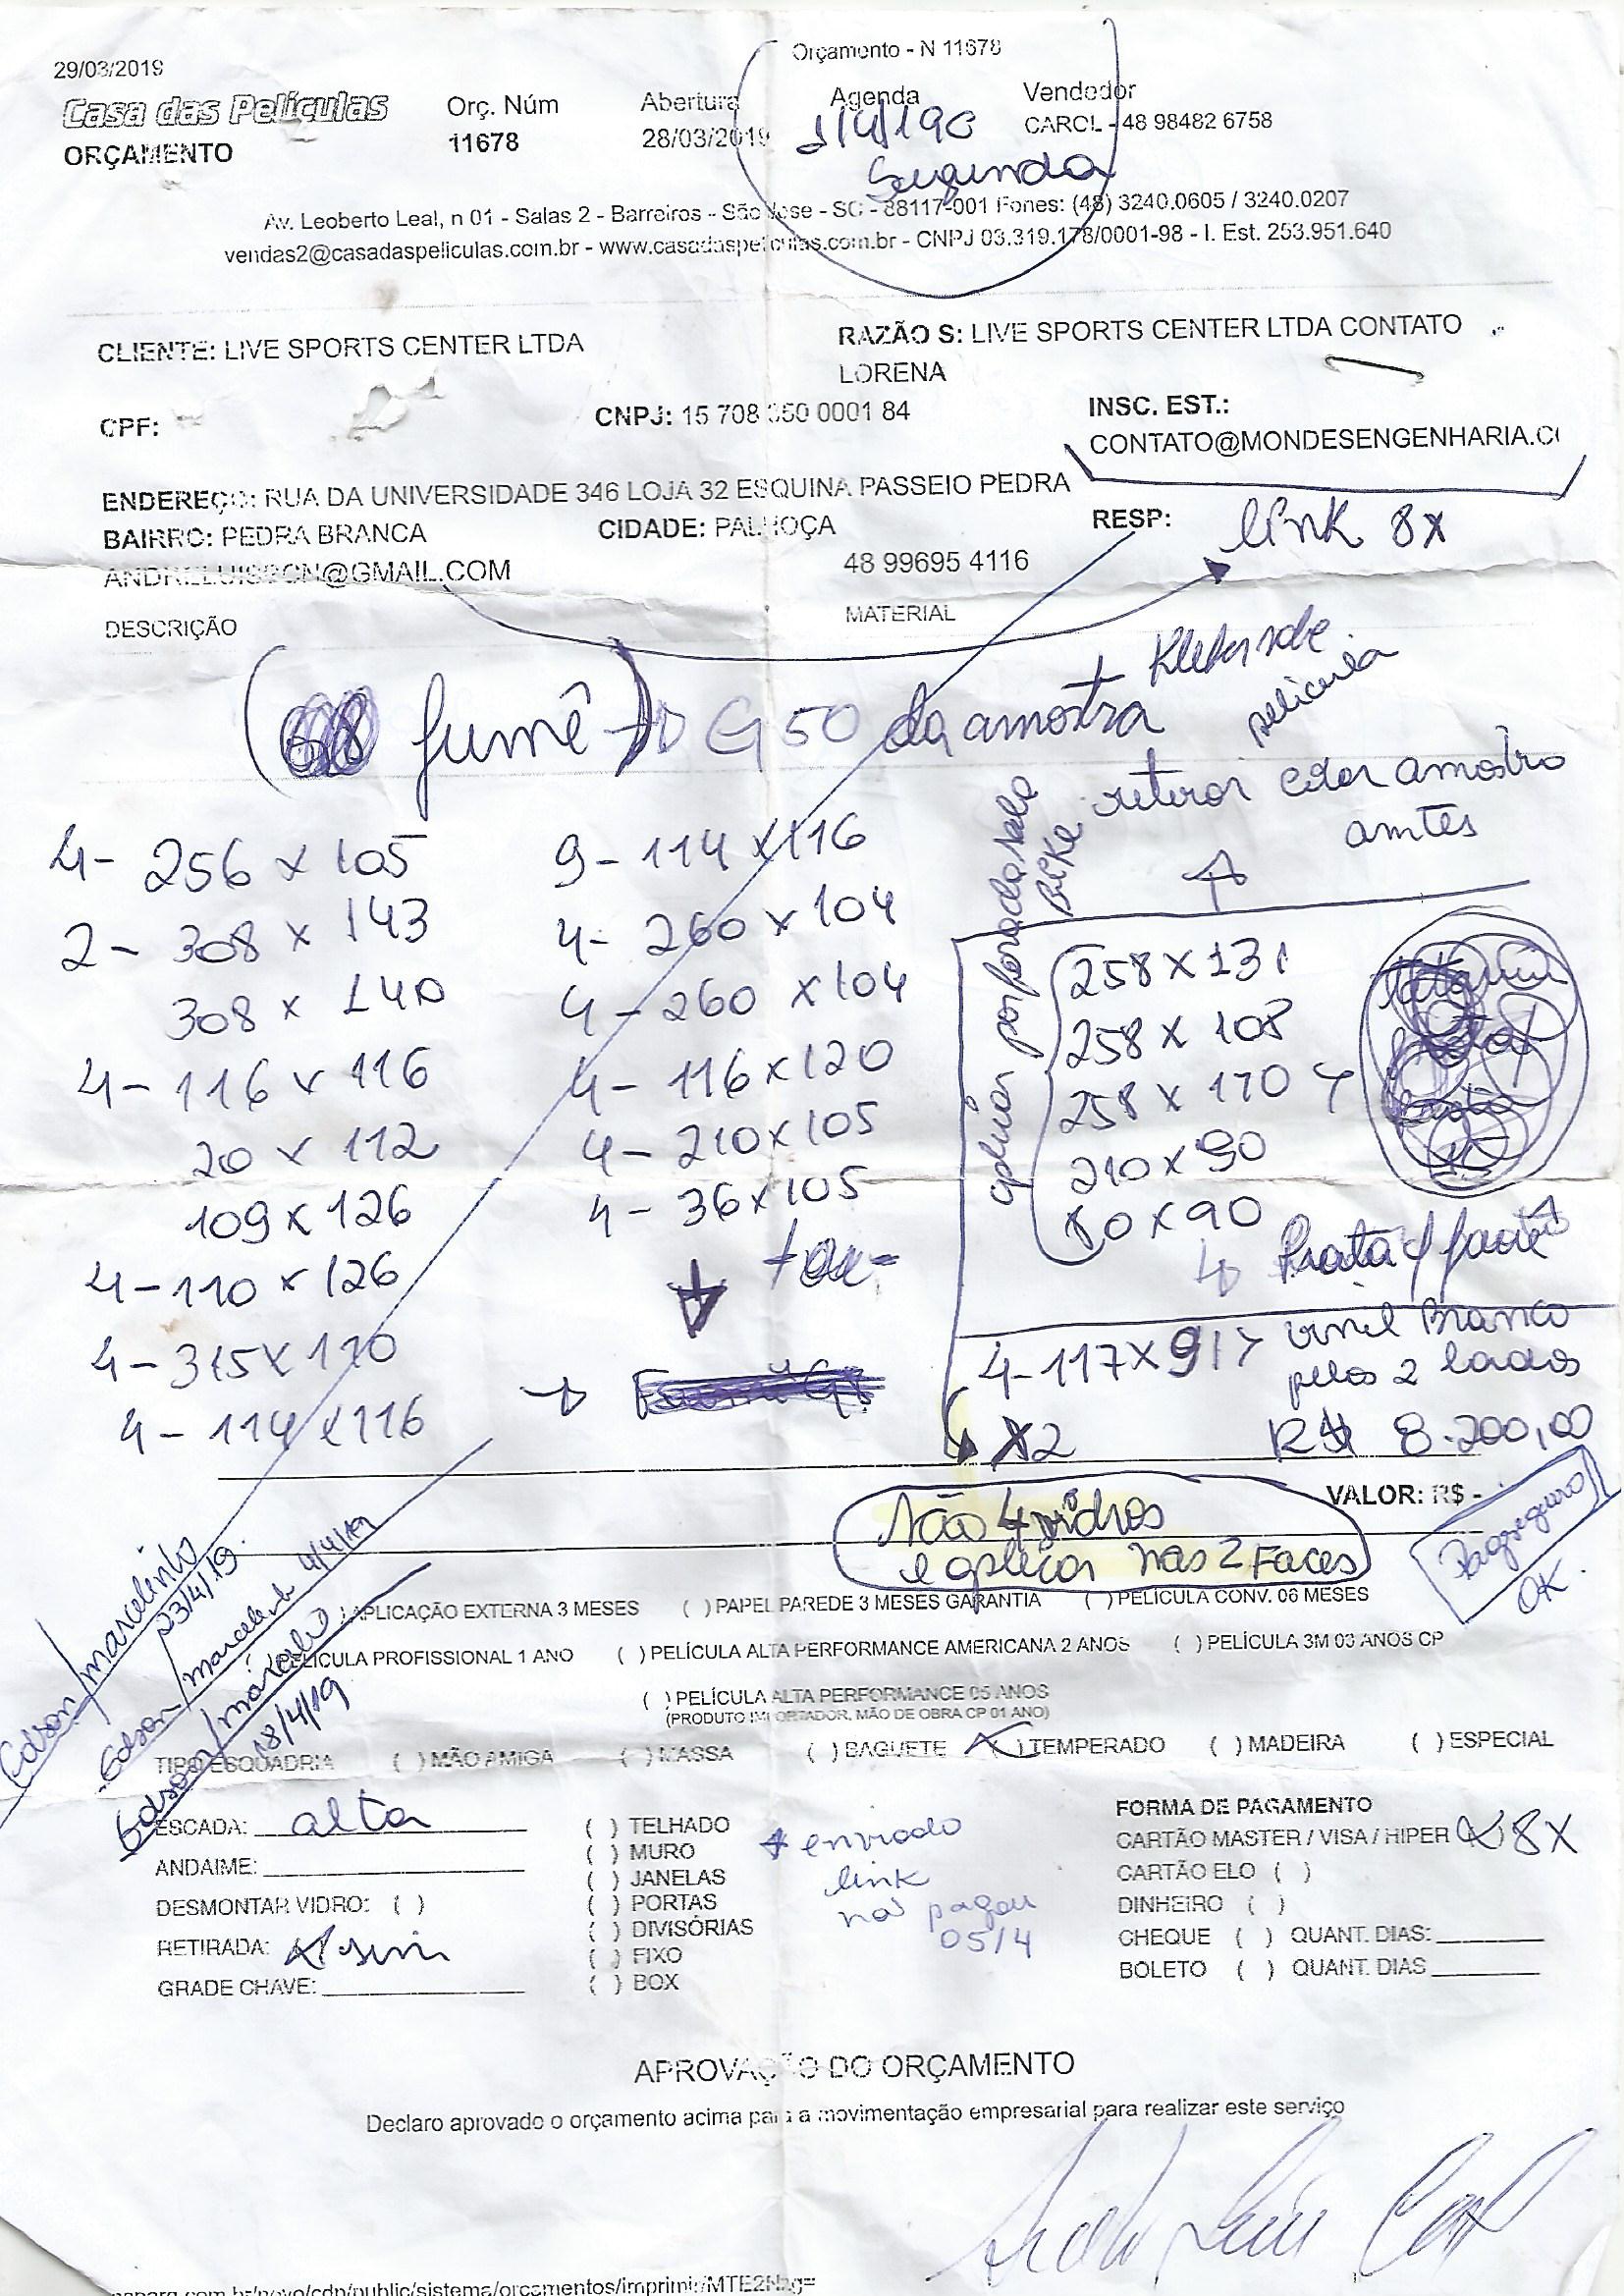 Orçamento - N 11678
29/03/2019
Casa das Películas
Orç. Núm
Abertura
Agenda
Vendedor
ORÇAMENTO
11678
28/03/2019
CAROL - 48 98482 6758
Segunda
Av. Leoberto Leal, n 01 - Salas 2 - Barreiros - São Jose - SC - 88117-001 Fones: (48) 3240.0605 / 3240.0207
vendas2@casadaspeliculas.com.br - www.casadaspeliculas.com.br - CNPJ 03.319.178/0001-98 - I. Est. 253.951.640
CLIENTE: LIVE SPORTS CENTER LTDA
RAZÃO S: LIVE SPORTS CENTER LTDA CONTATO
LORENA
CPF:
CNPJ: 15 708 350 0001 84
INSC. EST.:
CONTATO@MONDESENGENHARIA.C
ENDEREÇO: RUA DA UNIVERSIDADE 346 LOJA 32 ESQUINA PASSEIO PEDRA
BAIRRO: PEDRA BRANCA
CIDADE: PALHOÇA
RESP:
link 8x
48 99695 4116
DESCRIÇÃO
MATERIAL
fumê G50 da amostra
película
retirar amostra
antes
perfurada sala
Bike
4- 256 x 105
2- 308 x 143
308 x 140
4- 116 x 116
20 x 112
109 x 126
4- 110 x 126
4- 315 x 110
4- 114 x 116
9- 114 x 116
4- 260 x 104
4- 260 x 104
4- 116 x 120
4- 210 x 105
4- 36 x 105
258 x 131
258 x 108
258 x 170
210 x 90
80 x 90
Prata
4- 117 x 91 > vinil Branco
pelos 2 lados
x2
R$ 8.200,00
VALOR: R$ -
São 4 vidros
e aplicar nas 2 Faces
Pagseguro
OK.
Edson/marcelinho
23/4/19
Edson/marcelinho 4/4/19
Edson/márcelo
18/4/19
( ) APLICAÇÃO EXTERNA 3 MESES ( ) PAPEL PAREDE 3 MESES GARANTIA ( ) PELÍCULA CONV. 06 MESES
( ) PELÍCULA PROFISSIONAL 1 ANO ( ) PELÍCULA ALTA PERFORMANCE AMERICANA 2 ANOS ( ) PELÍCULA 3M 03 ANOS CP
( ) PELÍCULA ALTA PERFORMANCE 05 ANOS
(PRODUTO IMPORTADOR, MÃO DE OBRA CP 01 ANO)
TIPO ESQUADRIA ( ) MÃO AMIGA ( ) MASSA ( ) BAGUETE ( ) TEMPERADO ( ) MADEIRA ( ) ESPECIAL
ESCADA: alta
ANDAIME:
DESMONTAR VIDRO: ( )
RETIRADA: x sim
GRADE CHAVE:
( ) TELHADO
( ) MURO
( ) JANELAS
( ) PORTAS
( ) DIVISÓRIAS
( ) FIXO
( ) BOX
enviado
link
não pagou
05/4
FORMA DE PAGAMENTO
CARTÃO MASTER / VISA / HIPER (x) 8x
CARTÃO ELO ( )
DINHEIRO ( )
CHEQUE ( ) QUANT. DIAS:
BOLETO ( ) QUANT. DIAS
APROVAÇÃO DO ORÇAMENTO
Declaro aprovado o orçamento acima para a movimentação empresarial para realizar este serviço